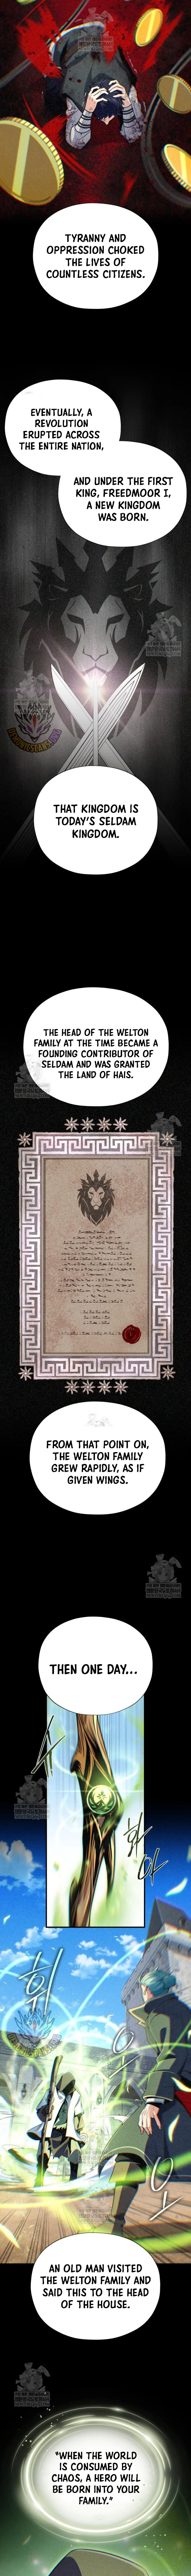 TYRANNY AND
OPPRESSION CHOKED
THE LIVES OF
COUNTLESS CITIZENS.
EVENTUALLY, A
REVOLUTION
ERUPTED ACROSS
THE ENTIRE NATION,
AND UNDER THE FIRST
KING, FREEDMOOR I,
A NEW KINGDOM
WAS BORN.
THAT KINGDOM IS
TODAY'S SELDAM
KINGDOM.
THE HEAD OF THE WELTON
FAMILY AT THE TIME BECAME A
FOUNDING CONTRIBUTOR OF
SELDAM AND WAS GRANTED
THE LAND OF HAIS.
FROM THAT POINT ON,
THE WELTON FAMILY
GREW RAPIDLY, AS IF
GIVEN WINGS.
THEN ONE DAY...
AN OLD MAN VISITED
THE WELTON FAMILY AND
SAID THIS TO THE HEAD
OF THE HOUSE.
"WHEN THE WORLD
IS CONSUMED BY
CHAOS, A HERO WILL
BE BORN INTO YOUR
FAMILY."